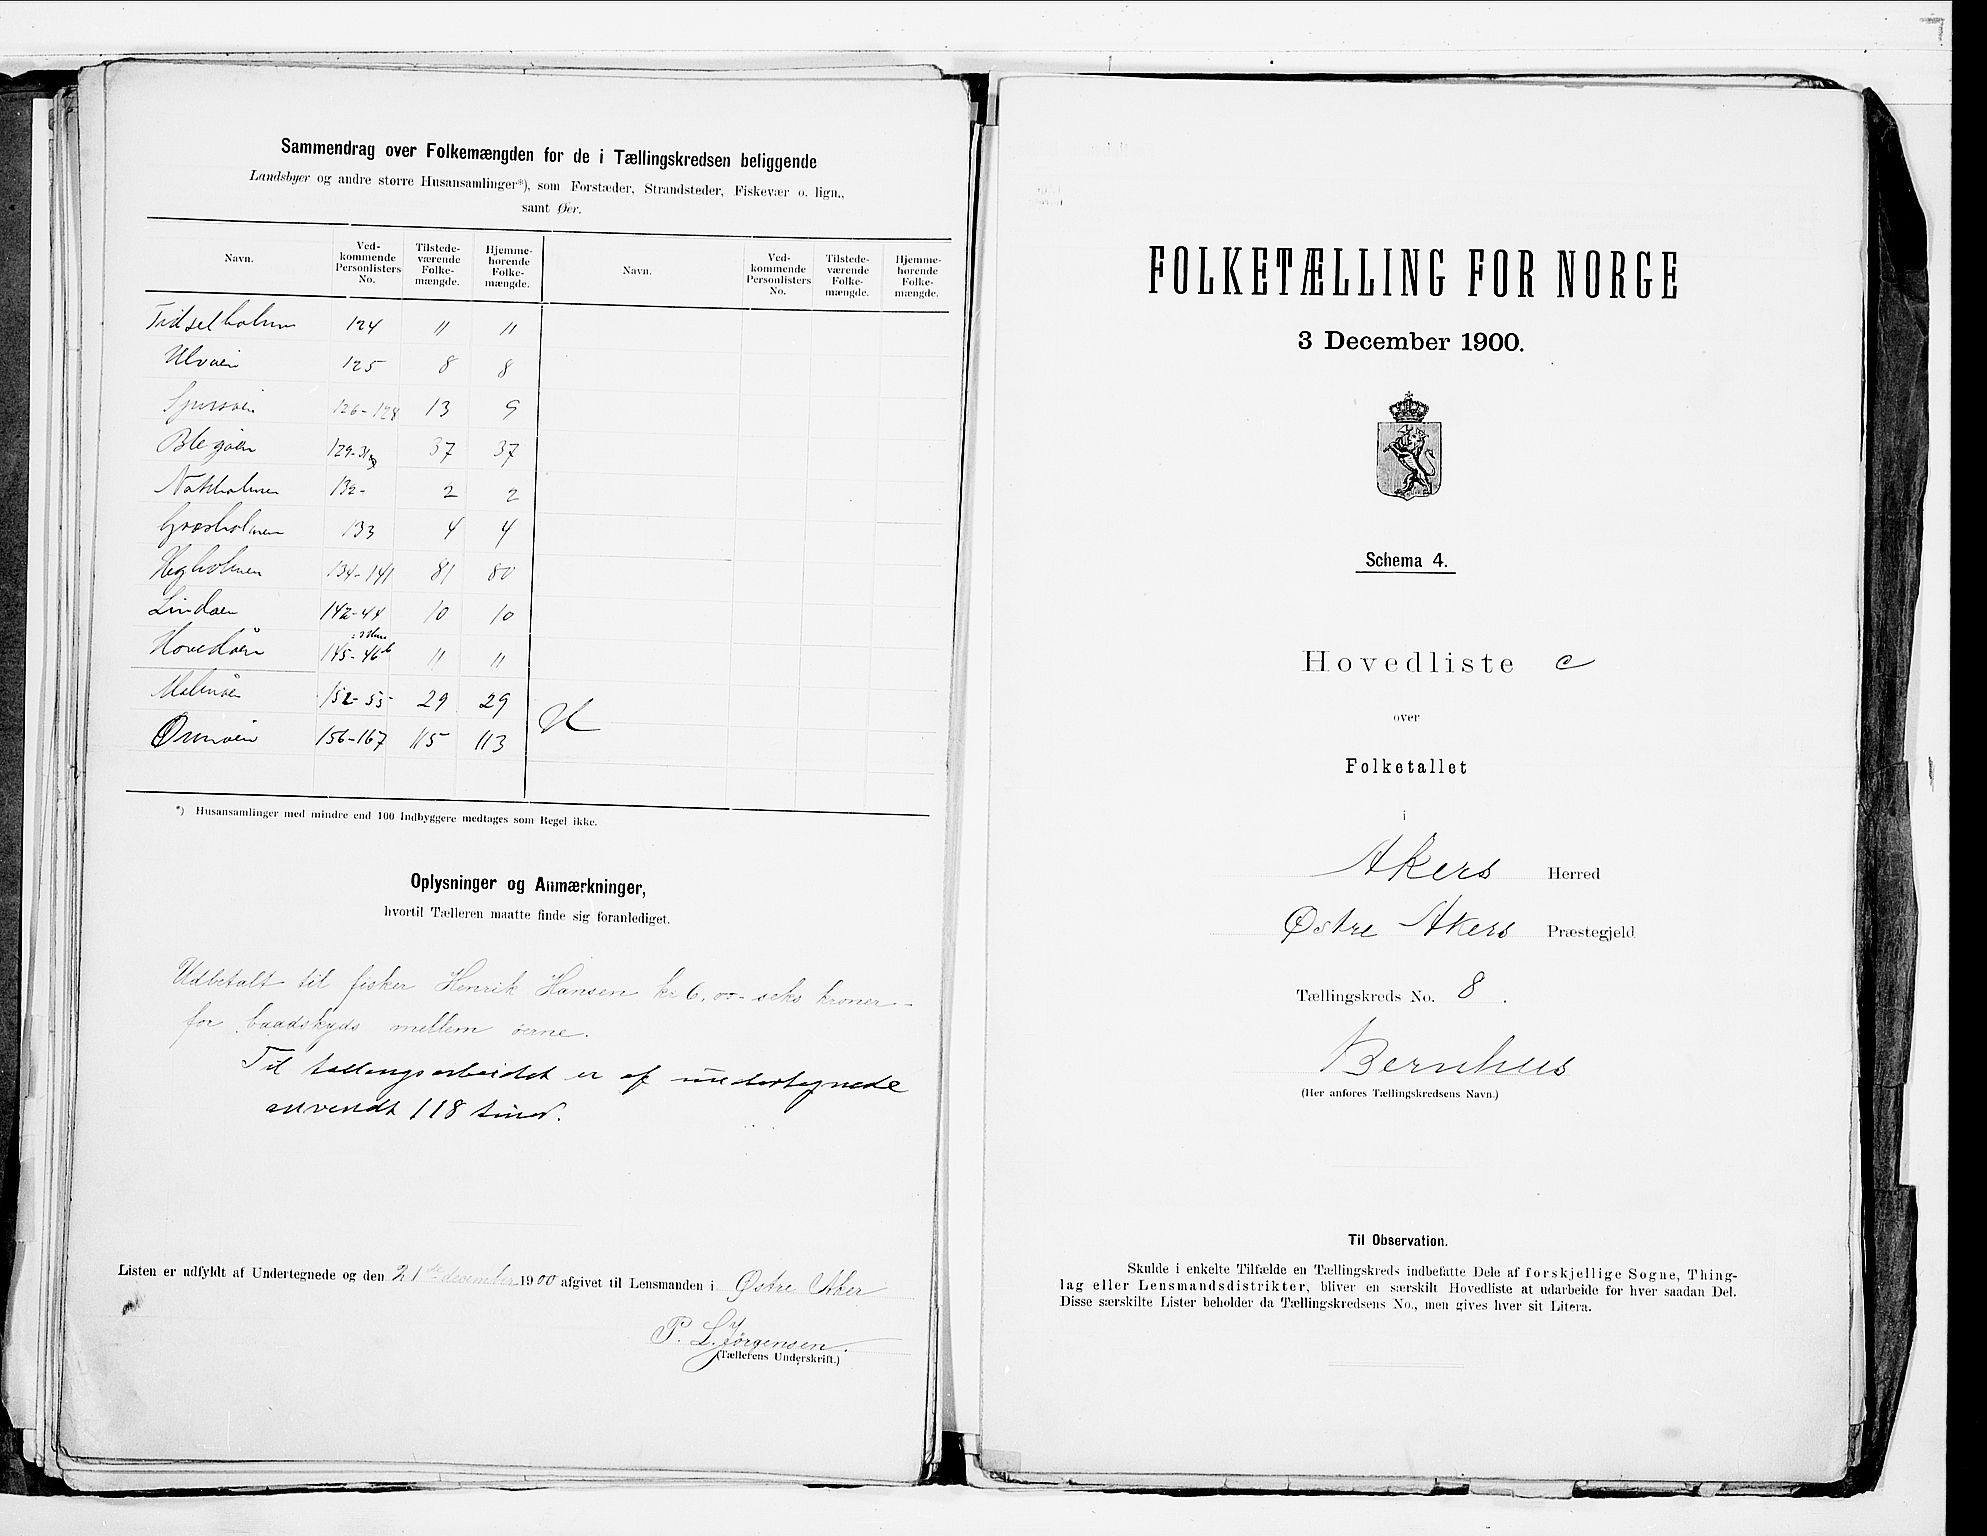 Sammendrag over Folkemængden for de i Tællingskredsen beliggende
Landsbyer og andre større Husansamlinger*), som Forstæder, Strandsteder, Fiskevær o. lign.,
samt Øer.
Navn. Ved-kommende Personlisters No. Tilstede-værende Folke-mængde. Hjemme-hørende Folke-mængde. Navn. Ved-kommende Personlisters No. Tilstede-værende Folke-mængde. Hjemme-hørende Folke-mængde.
Tidselholmen 124 11 11
Ulvøen 125 8 8
126-128 13 9
Blegøen 129-31 37 37
Nakholmen 132- 2 2
Græsholmen 133 4 4
Hegholmen 134-141 81 80
Lindøen 142-44 10 10
Hovedøen 145-46b 11 11
Malmøen 152-55 29 29
Ormøen 156-167 115 113
*) Husansamlinger med mindre end 100 Indbyggere medtages som Regel ikke.
Oplysninger og Anmærkninger,
hvortil Tælleren maatte finde sig foranlediget.
Udbetalt til fisker Henrik Hansen kr 6,00 - seks kroner -
for baadskyds mellem øerne.
Til tællingsarbeidet er af undertegnede
anvendt 118 timer.
Listen er udfyldt af Undertegnede og den 21de december 1900 afgivet til Lensmanden i Østre Aker
P. L. Jørgensen.
(Tællerens Underskrift.)
FOLKETÆLLING FOR NORGE
3 December 1900.
Schema 4.
Hovedliste c
over
Folketallet
i
Akers Herred
Østre Akers Præstegjeld
Tællingskreds No. 8.
Bernhus
(Her anføres Tællingskredsens Navn.)
Til Observation.
Skulde i enkelte Tilfælde en Tællingskreds indbefatte Dele af forskjellige Sogne, Thing-
lag eller Lensmandsdistrikter, bliver en særskilt Hovedliste at udarbeide for hver saadan Del.
Disse særskilte Lister beholder da Tællingskredsens No., men gives hver sit Litera.